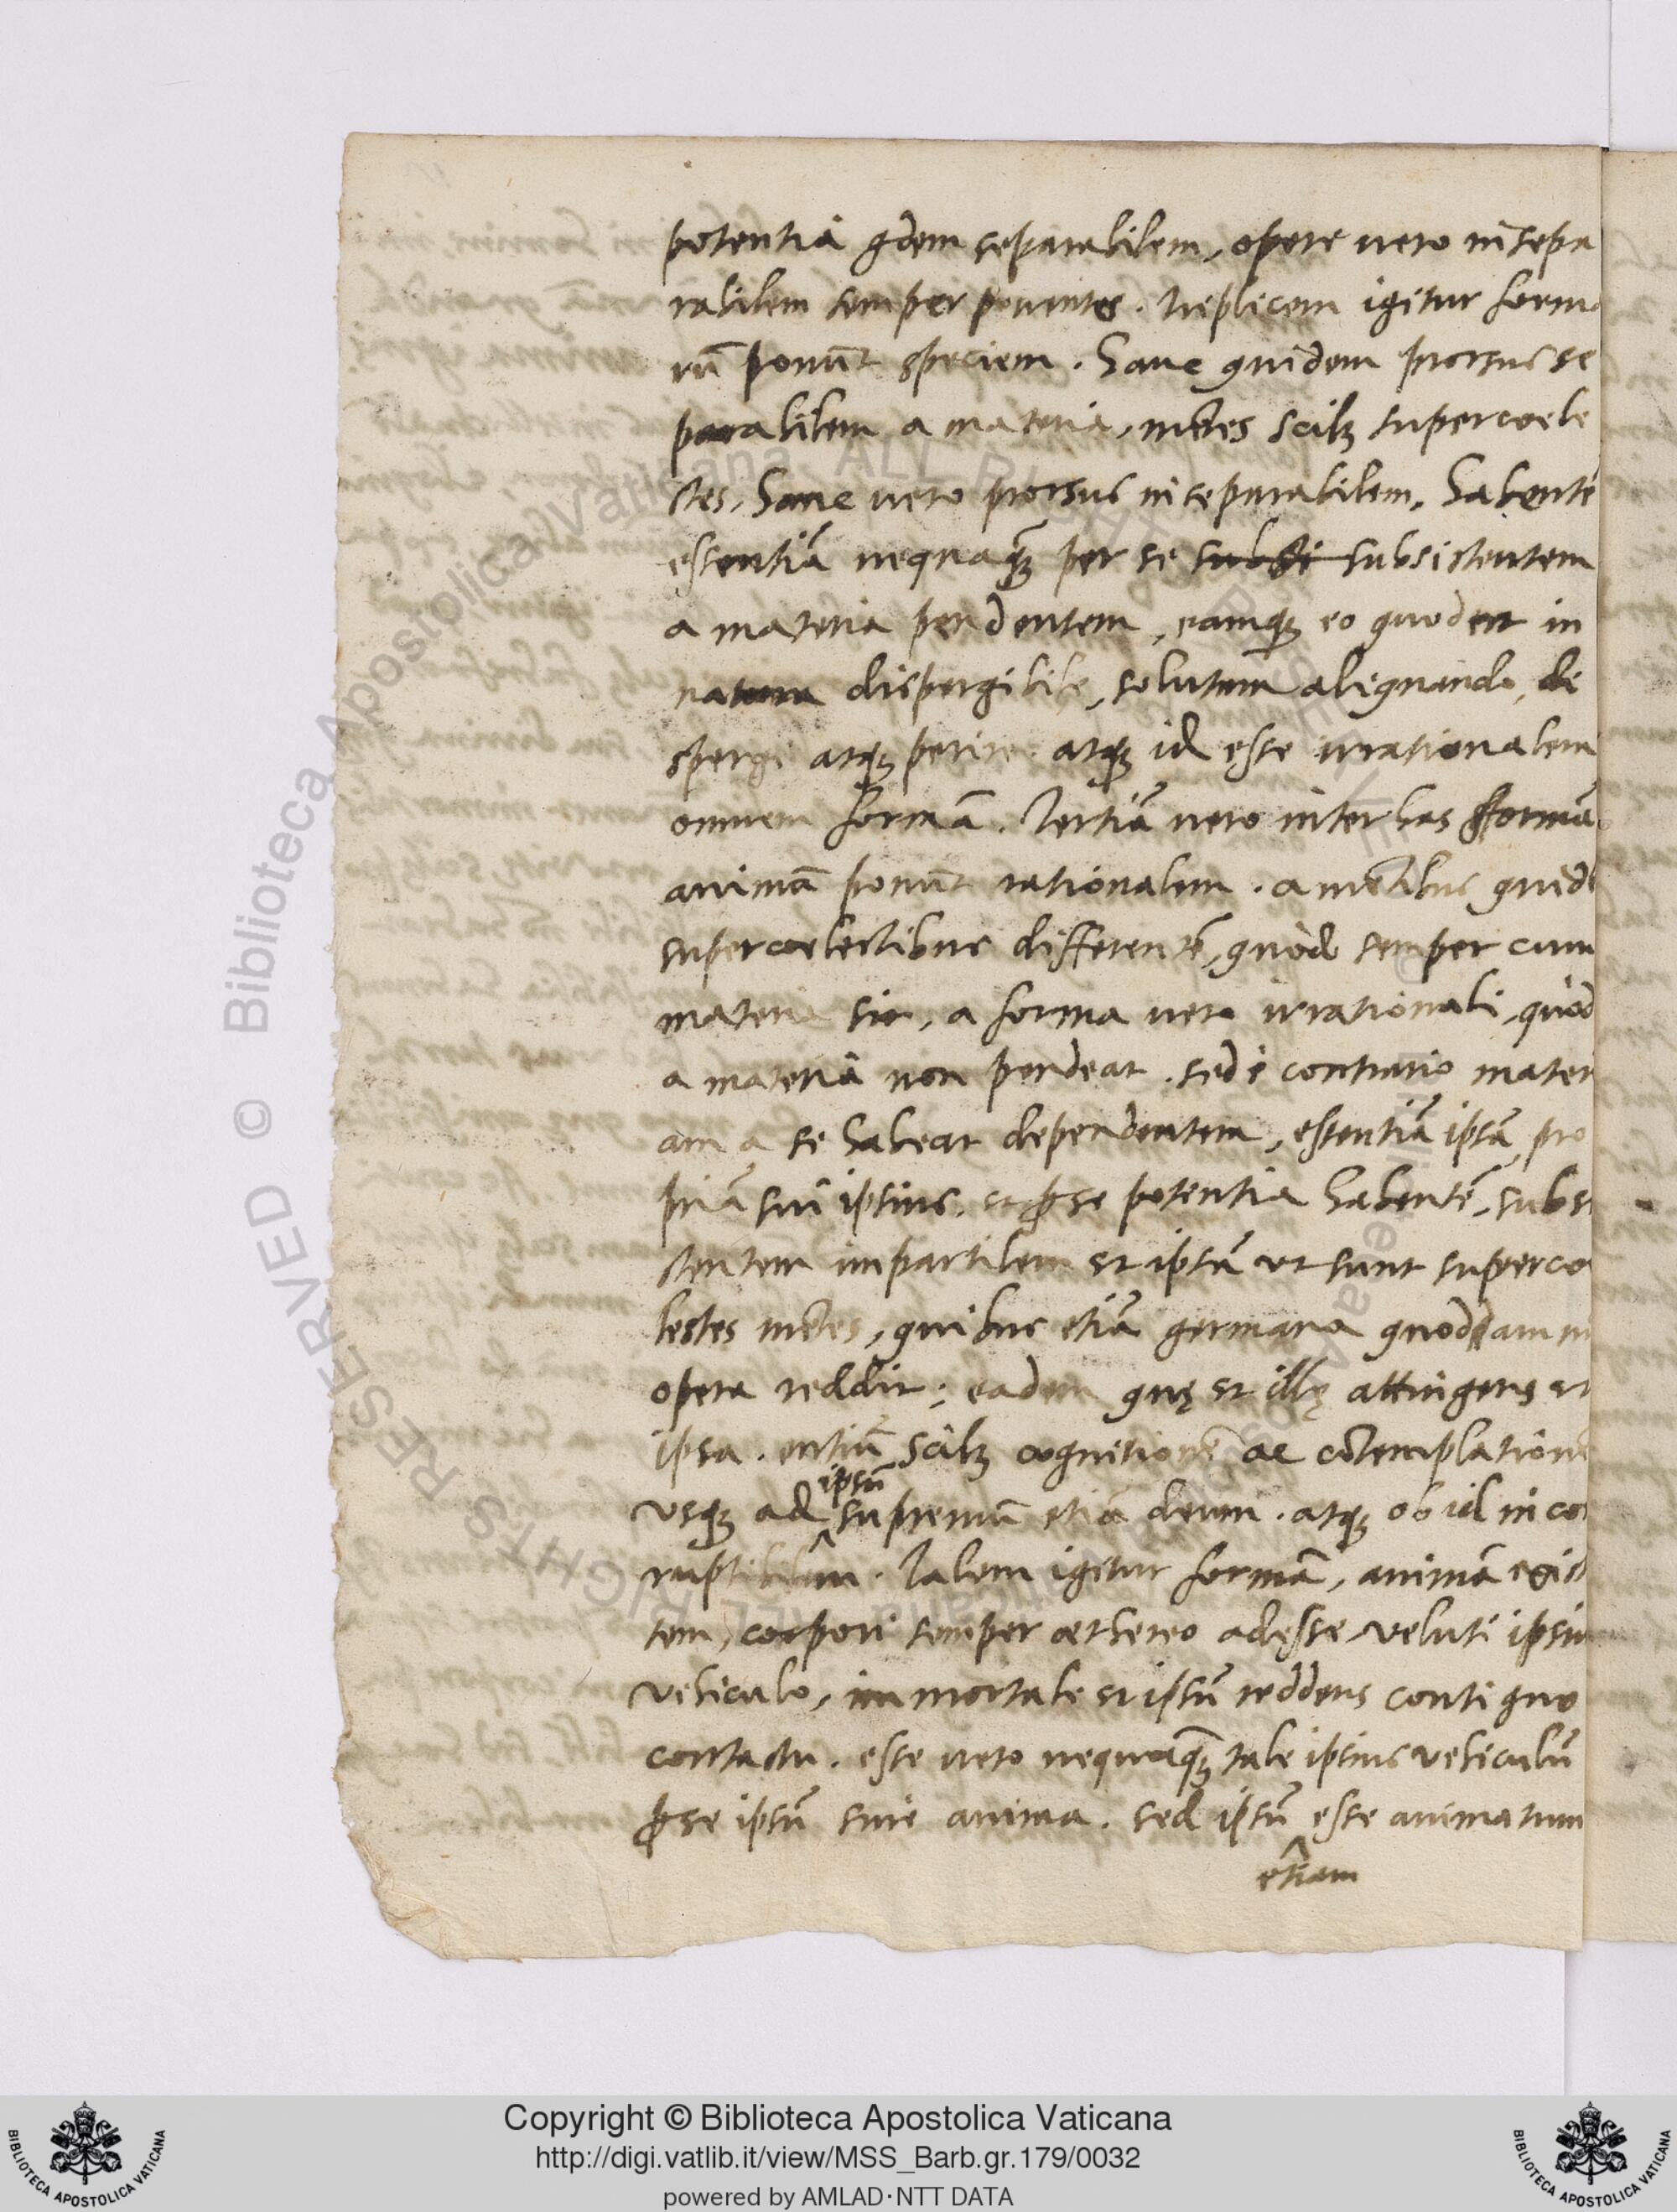 potentia qdem separabilem, opere vero insepa
rabilem semper ponentes. Triplicem igitur forma
rū ponūt speciem. Hanc quidem prorsus se
parabilem a materia, mētes scilꝫ supercoele
stes, Hanc vero prorsus inseparabilem, habentē
essentiā nequaqꝫ per se subsi subsistentem
a materia pendentem, eamqꝫ eo quod est in
natura dispergibile, solutum aliquando, di
spergi atqꝫ perire. atqꝫ id esse irrationalem
omnem formā. Tertiā vero inter has formā
animā ponūt rationalem. a mētibus quid
supercoelestibus differentē, quòd semper cum
materia sit, a forma vero irrationali, quòd
a materia non pendeat. sed è contrario mater
am a se habeat dependentem, essentiā ipsā pro
priā sui ipsius, et ꝑ se potentia habentē, subsi
stentem impartilem et ipsā ut sunt superco
lestes mētes, quibus etiā germana quoddam m
opera reddit; eadem quę et illę attingens et
ipsa. entiū scilꝫ cognitionē ac cōtemplationē
usqꝫ ad ipsū supremū etiā deum. atqꝫ ob id incor
ruptibilem. Talem igitur formā, animā exis
tem, corpori semper aethereo adesse veluti ipsiu
vehiculo, immortale et ipsū reddens contiguo
contactu. esse vero nequaqꝫ tale ipsius vehiculū
ꝑ se ipsū sine anima. sed ipsū esse animatum
etiam
Copyright © Biblioteca Apostolica Vaticana
http://digi.vatlib.it/view/MSS_Barb.gr.179/0032
powered by AMLAD·NTT DATA
BIBLIOTECA APOSTOLICA VATICANA
BIBLIOTECA APOSTOLICA VATICANA
© Biblioteca Apostolica Vaticana ALL RIGHTS RESERVED
© Biblioteca Apostolica Vaticana ALL RIGHTS RESERVED